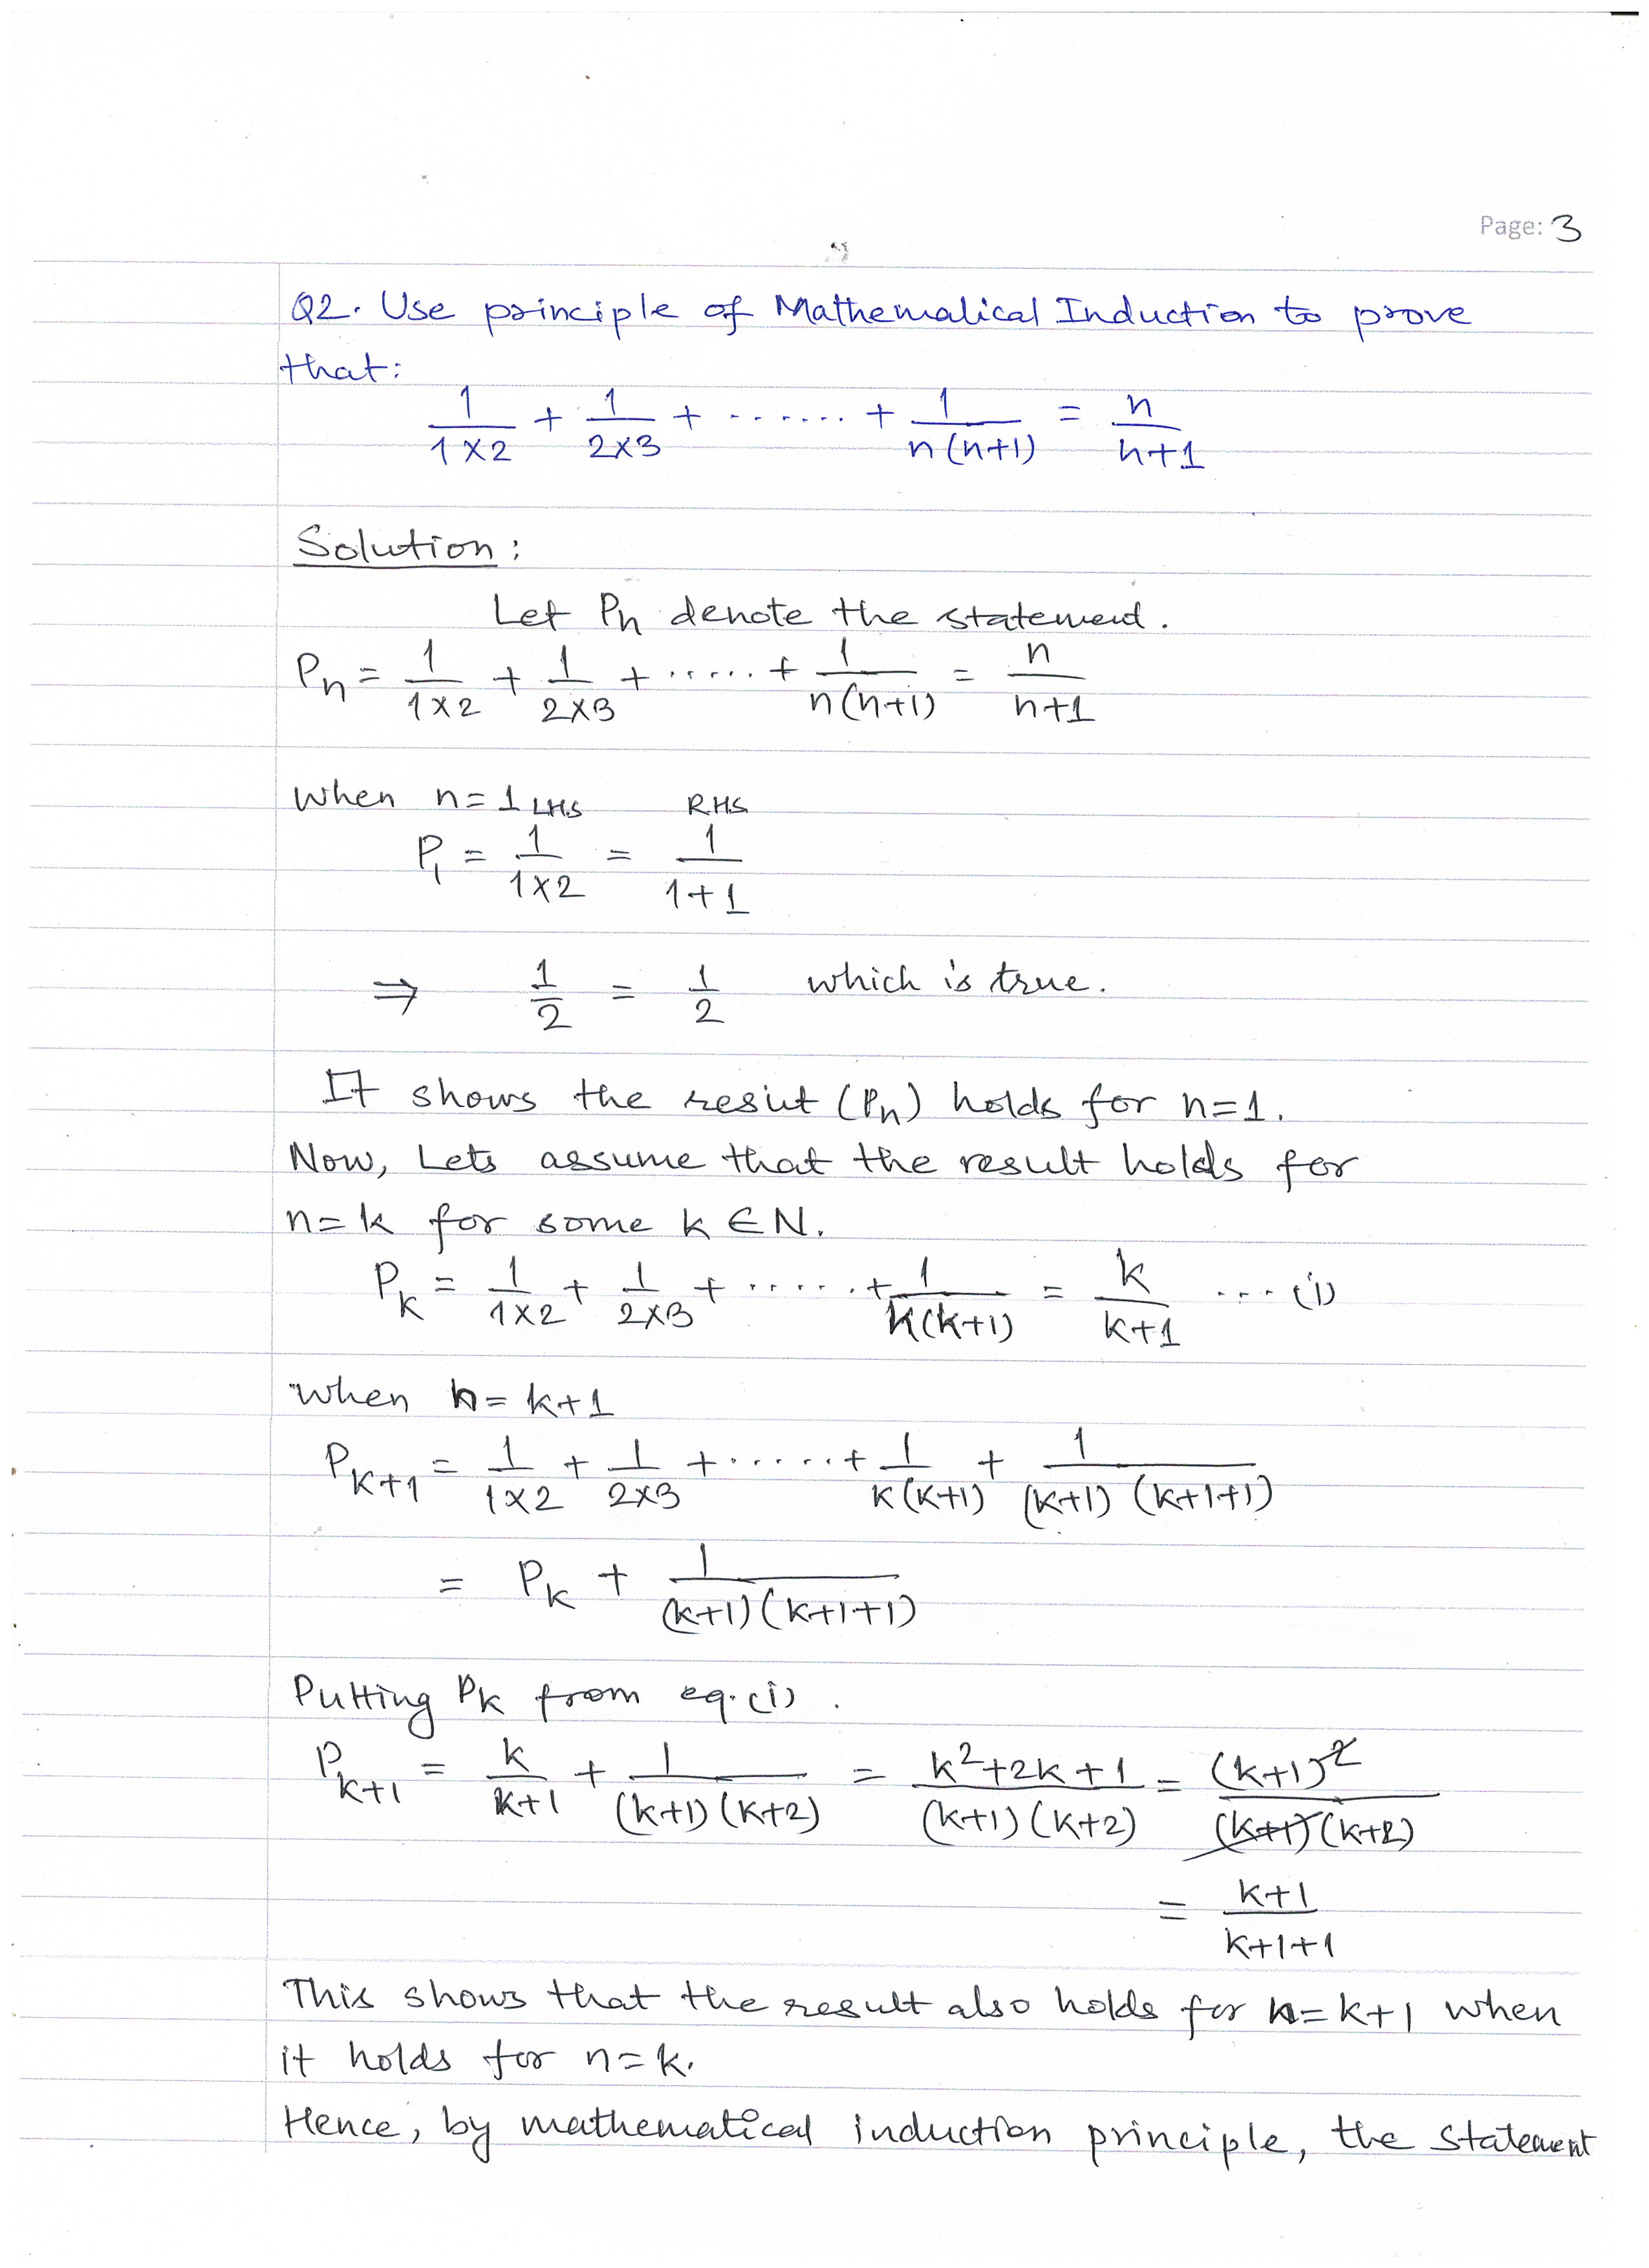 Page: 3
Q2. Use principle of Mathematical Induction to prove
that:
1/(1×2) + 1/(2×3) + ....... + 1/(n(n+1)) = n/(n+1)
Solution:
Let Pn denote the statement.
Pn = 1/(1×2) + 1/(2×3) + ...... + 1/(n(n+1)) = n/(n+1)
when n=1 LHS RHS
P1 = 1/(1×2) = 1/(1+1)
⇒ 1/2 = 1/2 which is true.
It shows the resut (Pn) holds for n=1.
Now, Lets assume that the result holds for
n=k for some k ∈ N.
Pk = 1/(1×2) + 1/(2×3) + ...... + 1/(k(k+1)) = k/(k+1) ... (i)
when n = k+1
Pk+1 = 1/(1×2) + 1/(2×3) + ...... + 1/(k(k+1)) + 1/((k+1)(k+1+1))
= Pk + 1/((k+1)(k+1+1))
Putting Pk from eq.(i).
Pk+1 = k/(k+1) + 1/((k+1)(k+2)) = (k²+2k+1)/((k+1)(k+2)) = (k+1)²/((k+1)(k+2))
= (k+1)/(k+1+1)
This shows that the result also holds for n=k+1 when
it holds for n=k.
Hence, by mathematical induction principle, the statement